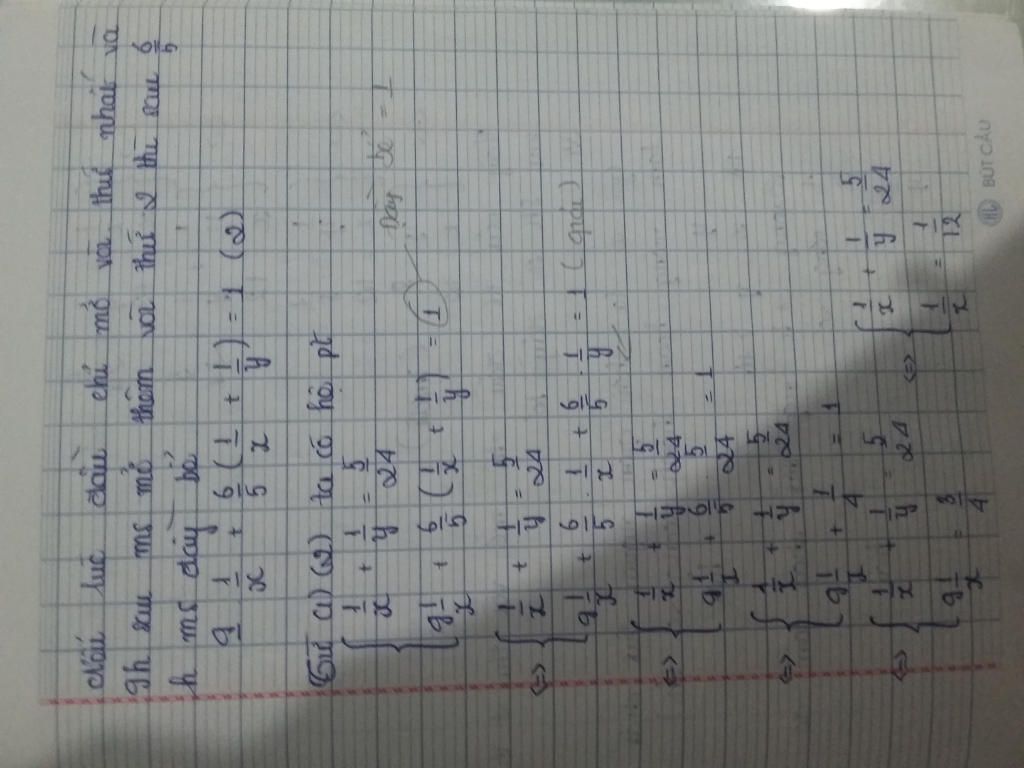 Nếu lúc đầu chỉ mở vòi thứ nhất và
9h sau ms mở thêm vòi thứ 2 thì sau 6/5
h ms đầy bể
9 1/x + 6/5 (1/x + 1/y) = 1 (2)
Từ (1) (2) ta có hệ pt
{ 1/x + 1/y = 5/24
{ 9 1/x + 6/5 (1/x + 1/y) = 1 đầy bể = 1
<=> { 1/x + 1/y = 5/24
{ 9 1/x + 6/5 . 1/x + 6/5 . 1/y = 1 (giải)
<=> { 1/x + 1/y = 5/24
{ 9 1/x + 6/5 5/24 = 1
<=> { 1/x + 1/y = 5/24
{ 9 1/x + 1/4 = 1
<=> { 1/x + 1/y = 5/24
{ 9 1/x = 3/4
<=> { 1/x + 1/y = 5/24
{ 1/x = 1/12
BÚT CÂU